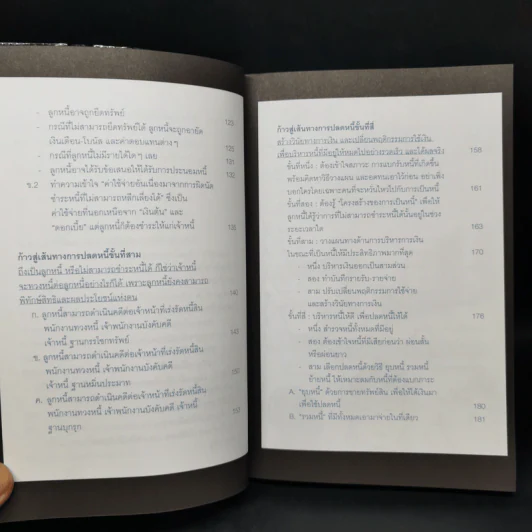 - ลูกหนี้อาจถูกยึดทรัพย์ 123
- กรณีที่ไม่สามารถยึดทรัพย์ได้ ลูกหนี้จะถูกอายัด
เงินเดือน-โบนัส และค่าตอบแทนต่าง ๆ
- กรณีที่ลูกหนี้ไม่มีรายได้ใด ๆ เลย
- ลูกหนี้อาจได้รับข้อเสนอให้ได้รับการประนอมหนี้
ข.2 ทำความเข้าใจ "ค่าใช้จ่ายอันเนื่องมาจากการผิดนัด
ชำระหนี้ที่ไม่สามารถหลีกเลี่ยงได้" ซึ่งเป็น
ค่าใช้จ่ายที่นอกเหนือจาก "เงินต้น" และ
"ดอกเบี้ย" แต่ลูกหนี้ก็ต้องชำระให้แก่เจ้าหนี้
ก้าวสู่เส้นทางการปลดหนี้ขั้นที่สาม
ถึงเป็นลูกหนี้ หรือไม่สามารถชำระหนี้ได้ ก็ใช่ว่าเจ้าหนี้
จะทวงหนี้ต่อลูกหนี้อย่างไรก็ได้ เพราะลูกหนี้ยังคงสามารถ
พิทักษ์สิทธิและผลประโยชน์แห่งตน 140
ก. ลูกหนี้สามารถดำเนินคดีต่อเจ้าหน้าที่เร่งรัดหนี้สิน
พนักงานทวงหนี้ เจ้าพนักงานบังคับคดี
เจ้าหนี้ ฐานกรรโชกทรัพย์
ข. ลูกหนี้สามารถดำเนินคดีต่อเจ้าหน้าที่เร่งรัดหนี้สิน
พนักงานทวงหนี้ เจ้าพนักงานบังคับคดี
เจ้าหนี้ ฐานหมิ่นประมาท
ค. ลูกหนี้สามารถดำเนินคดีต่อเจ้าหน้าที่เร่งรัดหนี้สิน
พนักงานทวงหนี้ เจ้าพนักงานบังคับคดี เจ้าหนี้
ฐานบุกรุก
ก้าวสู่เส้นทางการปลดหนี้ขั้นที่สี่
สร้างวินัยทางการเงิน และเปลี่ยนพฤติกรรมการใช้เงิน
เพื่อบริหารหนี้ที่มีอยู่ให้หมดไปอย่างรวดเร็ว และได้ผลจริง 158
ขั้นที่หนึ่ง : ต้องเข้าใจสภาวะ การแบกรับหนี้ที่เกิดขึ้น
พร้อมคิดหาวิธีวางแผน และอดทนเอาไว้ก่อน อย่าเพิ่ง
บอกใครโดยเฉพาะคนที่จะหวั่นไหวไปกับการเป็นหนี้ 161
ขั้นที่สอง : ต้องรู้ "โครงสร้างของการเป็นหนี้" เพื่อให้
ลูกหนี้ได้รู้ว่าการที่ไม่สามารถชำระหนี้ได้นั้นอยู่ในช่วง
ระยะเวลาใด 163
ขั้นที่สาม : วางแผนทางด้านการบริหารการเงิน
ในขณะที่เป็นหนี้ให้มีประสิทธิภาพมากที่สุด 170
- หนึ่ง บริหารเงินออกเป็นสามส่วน
- สอง ทำบันทึกรายรับ-รายจ่าย
- สาม ปรับเปลี่ยนพฤติกรรมการใช้จ่าย
และสร้างวินัยทางการเงิน
ขั้นที่สี่ : บริหารหนี้ให้ดี เพื่อปลดหนี้ให้ได้ 176
- หนึ่ง สำรวจหนี้ทั้งหมดที่มีอยู่
- สอง ต้องเข้าใจหนี้ที่มีเสียก่อนว่า ผ่อนสั้น
หรือผ่อนยาว
- สาม เลือกปลดหนี้ด้วยวิธี ยุบหนี้ รวมหนี้
ย้ายหนี้ ให้เหมาะสมกับหนี้ที่ต้องแบกภาระ
A. "ยุบหนี้" ด้วยการขายทรัพย์สิน เพื่อให้ได้เงินมา
เพื่อใช้ปลดหนี้ 180
B. "รวมหนี้" ที่มีทั้งหมดเอามาจ่ายในที่เดียว 181